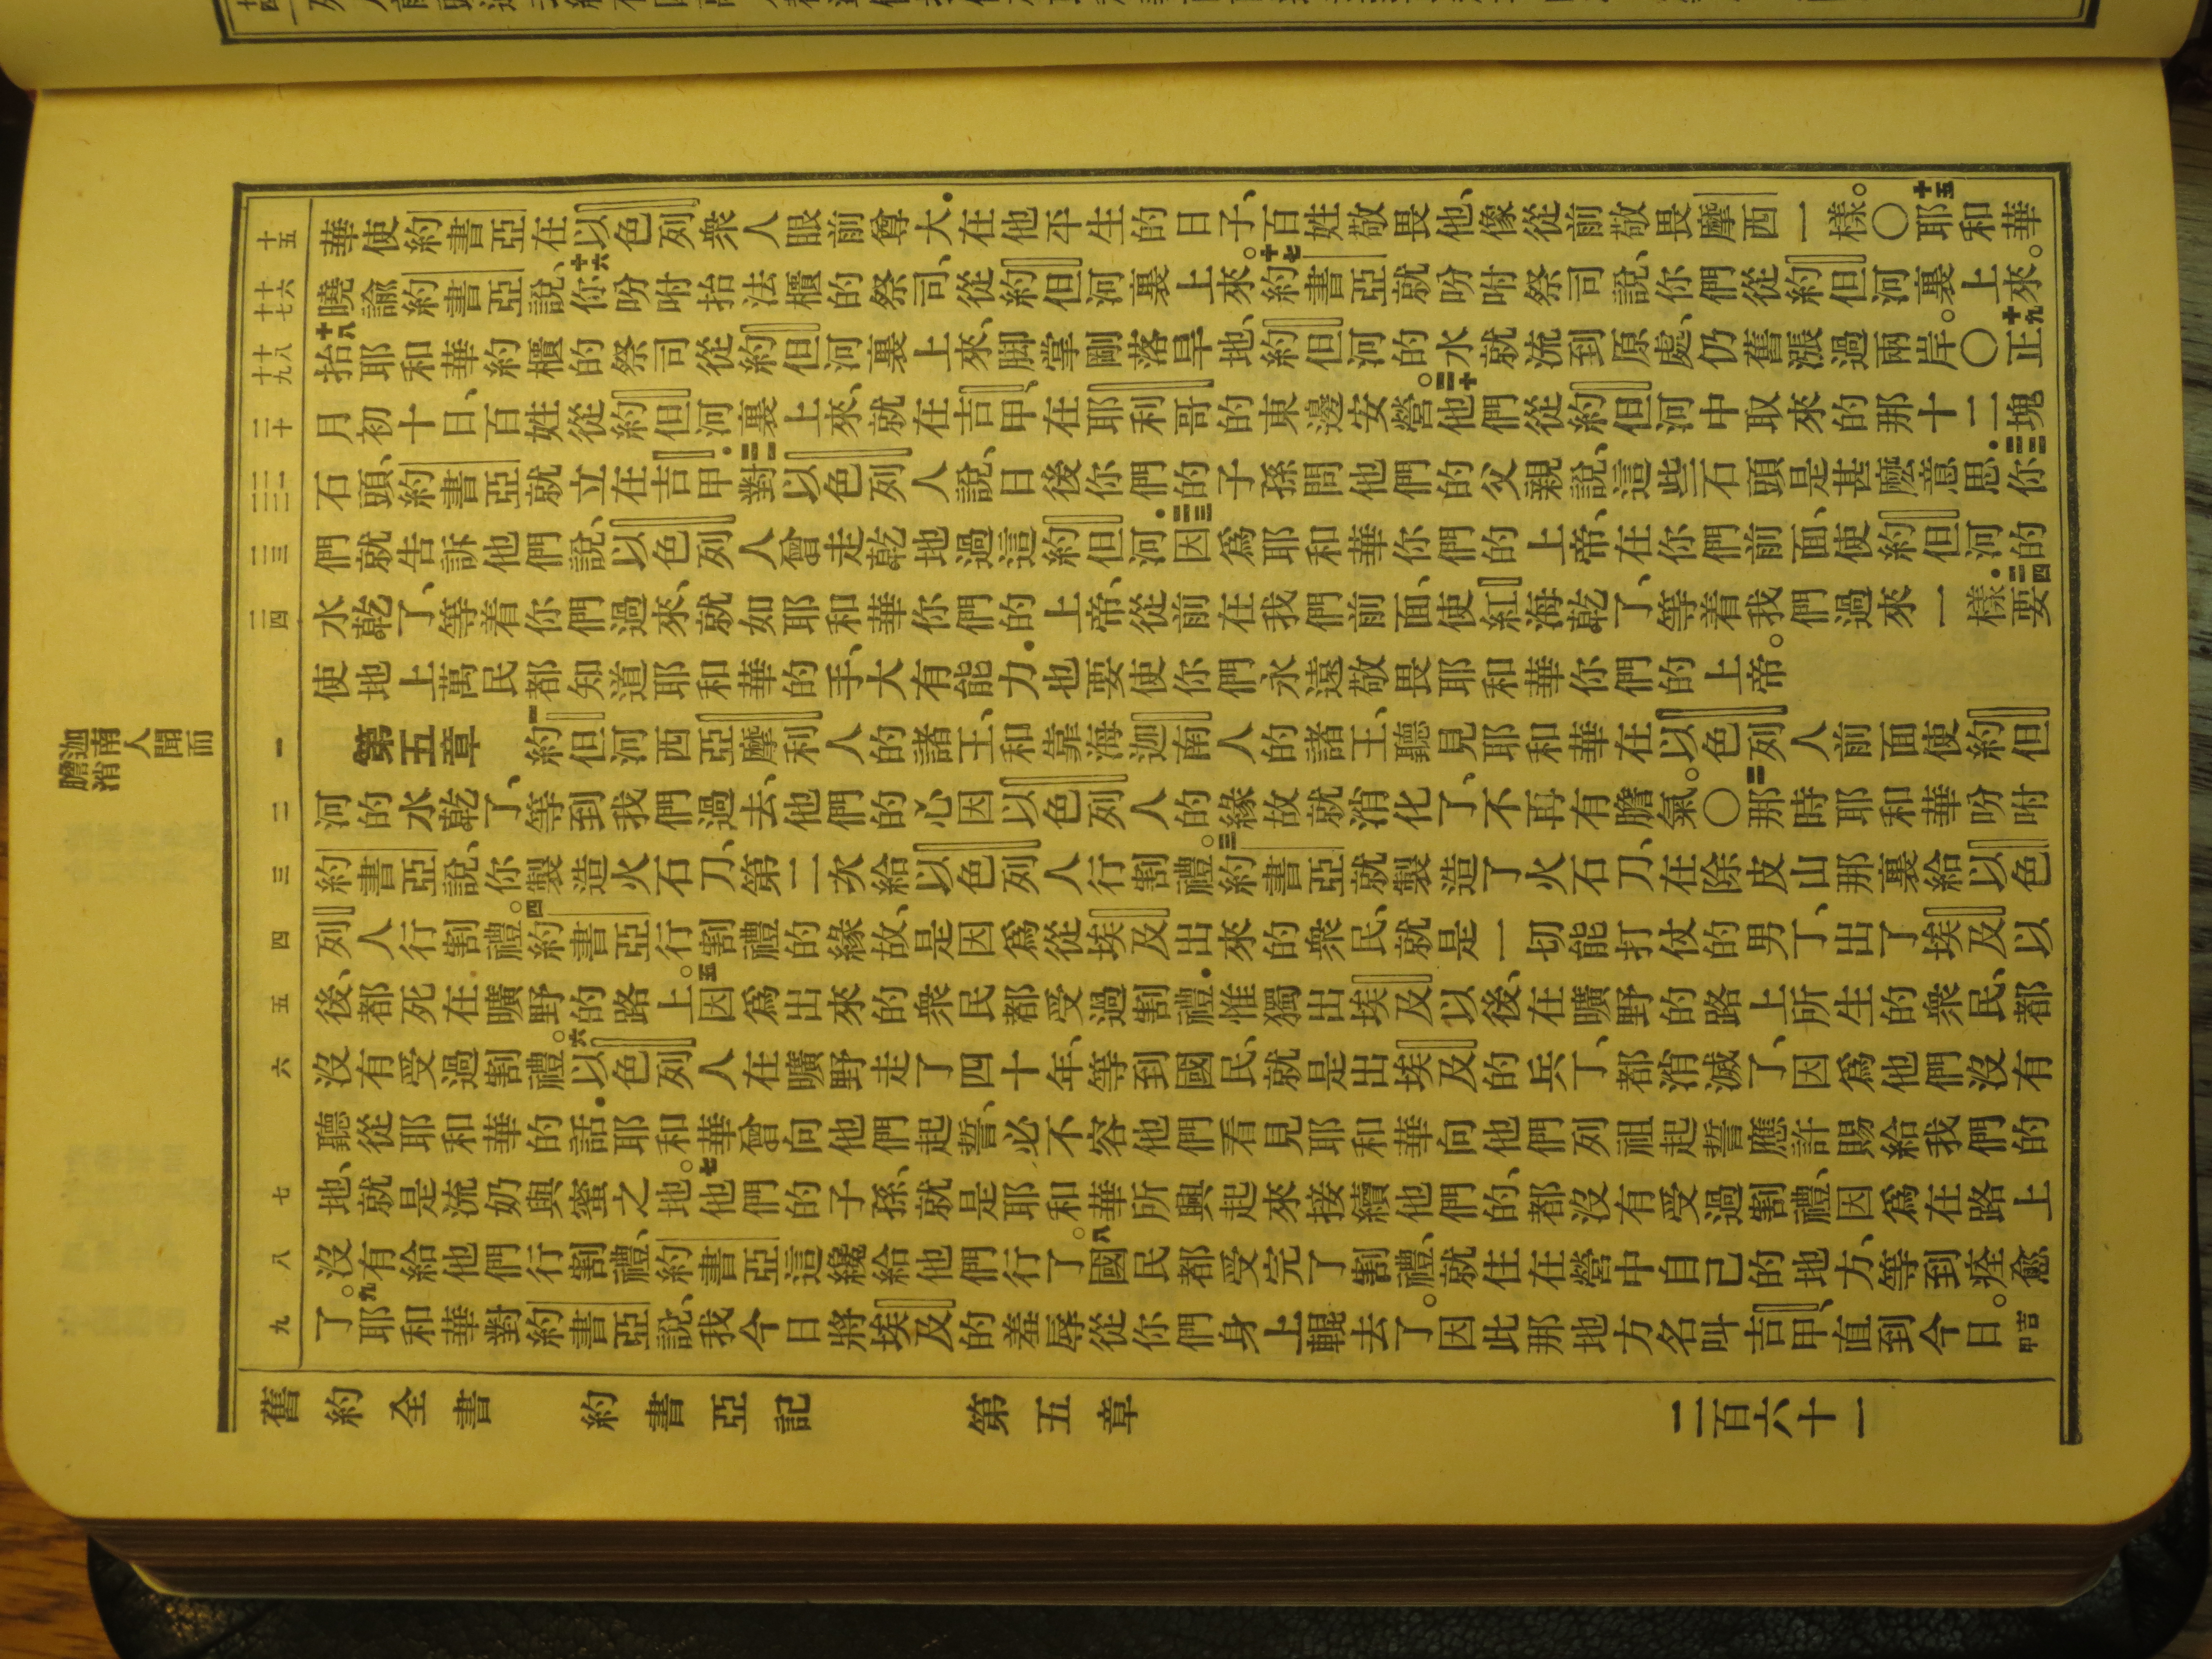 迦南人聞而
膽消
十五
十六
十七
十八
十九
二十
二一
二二
二三
二四
一
二
三
四
五
六
七
八
九
華使約書亞在以色列衆人眼前尊大．在他平生的日子、百姓敬畏他、像從前敬畏摩西一樣。〇十五耶和華
曉諭約書亞說、十六你吩咐抬法櫃的祭司、從約但河裏上來。十七約書亞就吩咐祭司說、你們從約但河裏上來。
十八抬耶和華約櫃的祭司從約但河裏上來、脚掌剛落旱地、約但河的水就流到原處、仍舊漲過兩岸。〇十九正
月初十日、百姓從約但河裏上來、就在吉甲、在耶利哥的東邊安營。二十他們從約但河中取來的那十二塊
石頭、約書亞就立在吉甲．二一對以色列人說、日後你們的子孫問他們的父親說、這些石頭是甚麼意思．二二你
們就告訴他們說、以色列人曾走乾地過這約但河．二三因爲耶和華你們的上帝、在你們前面、使約但河的
水乾了、等着你們過來、就如耶和華你們的上帝、從前在我們前面、使紅海乾了、等着我們過來一樣．二四要
使地上萬民都知道耶和華的手、大有能力．也要使你們永遠敬畏耶和華你們的上帝。
第五章 一約但河西亞摩利人的諸王、和靠海迦南人的諸王、聽見耶和華在以色列人前面使約但
河的水乾了、等到我們過去、他們的心因以色列人的緣故就消化了、不再有膽氣。〇二那時耶和華吩咐
約書亞說、你製造火石刀、第二次給以色列人行割禮。三約書亞就製造了火石刀、在除皮山那裏給以色
列人行割禮。四約書亞行割禮的緣故、是因爲從埃及出來的衆民、就是一切能打仗的男丁、出了埃及以
後、都死在曠野的路上。五因爲出來的衆民都受過割禮．惟獨出埃及以後、在曠野的路上所生的衆民、都
沒有受過割禮。六以色列人在曠野走了四十年、等到國民、就是出埃及的兵丁、都消滅了、因爲他們沒有
聽從耶和華的話．耶和華曾向他們起誓、必不容他們看見耶和華向他們列祖起誓應許賜給我們的
地、就是流奶與蜜之地。七他們的子孫、就是耶和華所興起來接續他們的、都沒有受過割禮、因爲在路上
沒有給他們行割禮、約書亞這纔給他們行了。八國民都受完了割禮、就住在營中自己的地方、等到痊愈
了。九耶和華對約書亞說、我今日將埃及的羞辱從你們身上輥去了。因此那地方名叫吉甲、直到今日。吉甲
舊約全書 約書亞記 第五章 二百六十一